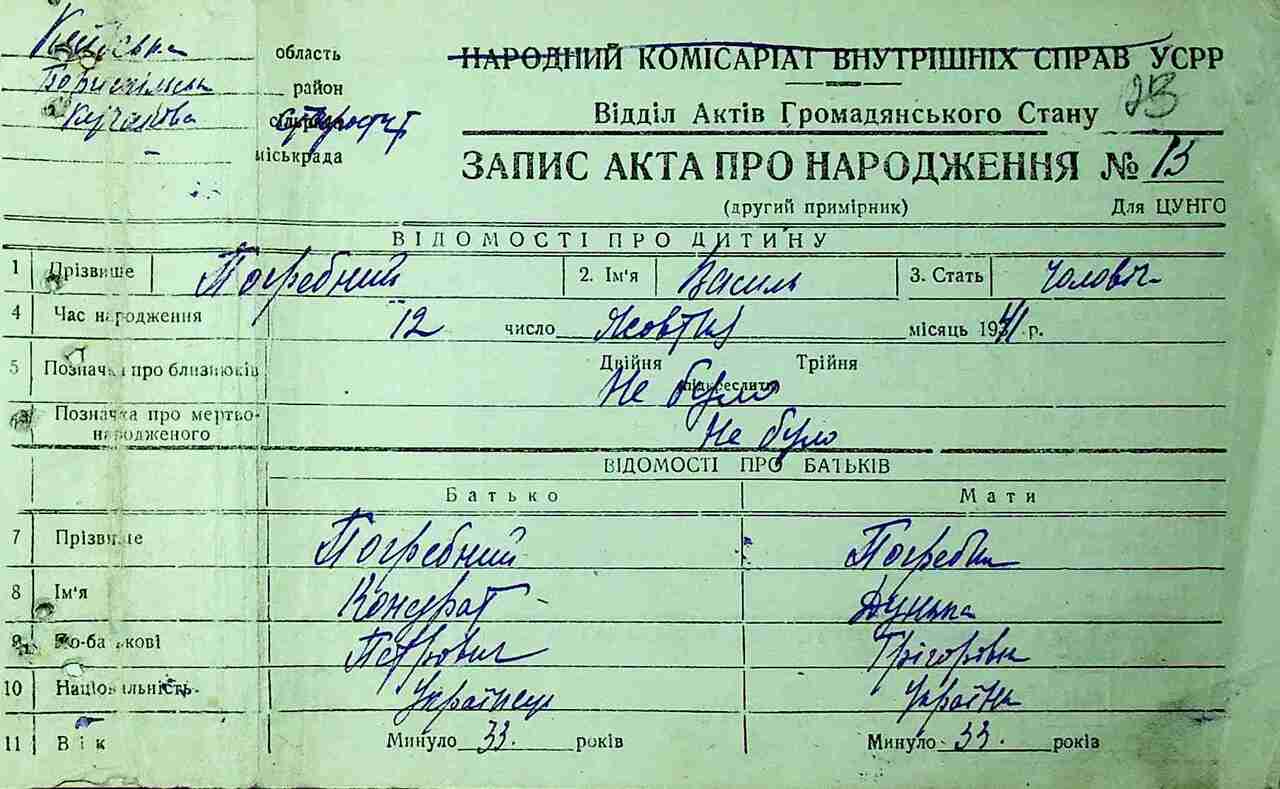 Київська область
Бориспільськ район
Кучакова сільрада Старостат
міськрада
НАРОДНИЙ КОМІСАРІАТ ВНУТРІШНІХ СПРАВ УСРР
Відділ Актів Громадянського Стану 23
ЗАПИС АКТА ПРО НАРОДЖЕННЯ № 13
(другий примірник) Для ЦУНГО
ВІДОМОСТІ ПРО ДИТИНУ
1 Прізвище Погребний 2. Ім'я Василь 3. Стать Чоловіч
4 Час народження 12 число Жовтня місяць 1941 р.
5 Позначка про близнюків Двійня Трійня
(підкреслити)
Не було
6 Позначка про мертво-
народженого Не було
ВІДОМОСТІ ПРО БАТЬКІВ
Батько Мати
7 Прізвище Погребний Погребна
8 Ім'я Кондрат Дунька
9 По-батькові Петрович Грігоровна
10 Національність Українець Україн
11 Вік Минуло 33. років Минуло 33. років